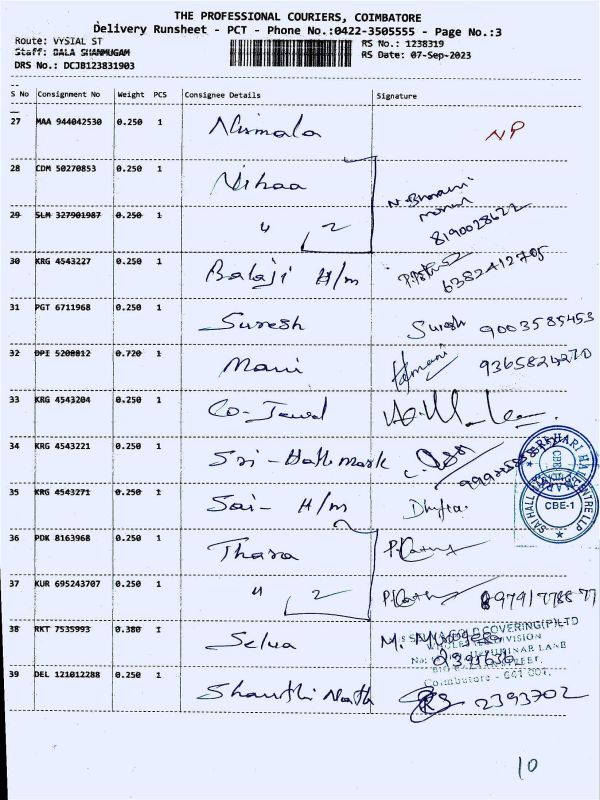 THE PROFESSIONAL COURIERS, COIMBATORE
Delivery Runsheet - PCT - Phone No.:0422-3505555 - Page No.:3
Route: VYSIAL ST RS No.: 1238319
Staff: DALA SHANMUGAM RS Date: 07-Sep-2023
DRS No.: DCJB123831903
S No Consignment No Weight PCS Consignee Details Signature
27 MAA 944042530 0.250 1 Nirmala NP
28 CDM 50270853 0.250 1 Nihaa
29 SLM 327901987 0.250 1 " 2 8190028622
30 KRG 4543227 0.250 1 Balaji H/m 6382412705
31 PGT 6711968 0.250 1 Suresh Suresh 9003585453
32 DPI 5200812 0.720 1 Mani 9365824270
33 KRG 4543204 0.250 1 Co-Jewel
34 KRG 4543221 0.250 1 Sri-Hallmark
35 KRG 4543271 0.250 1 Sai- H/m
SAI HALL
CBE-1
36 PDK 8163968 0.250 1 Thara
37 KUR 695243707 0.250 1 " 2
38 RKT 7535993 0.380 1 Selva
GOLD COVERING(P)LTD
DIVISION
Coimbatore - 641 001.
39 DEL 121012288 0.250 1 Shanthi Nath 2393702
10